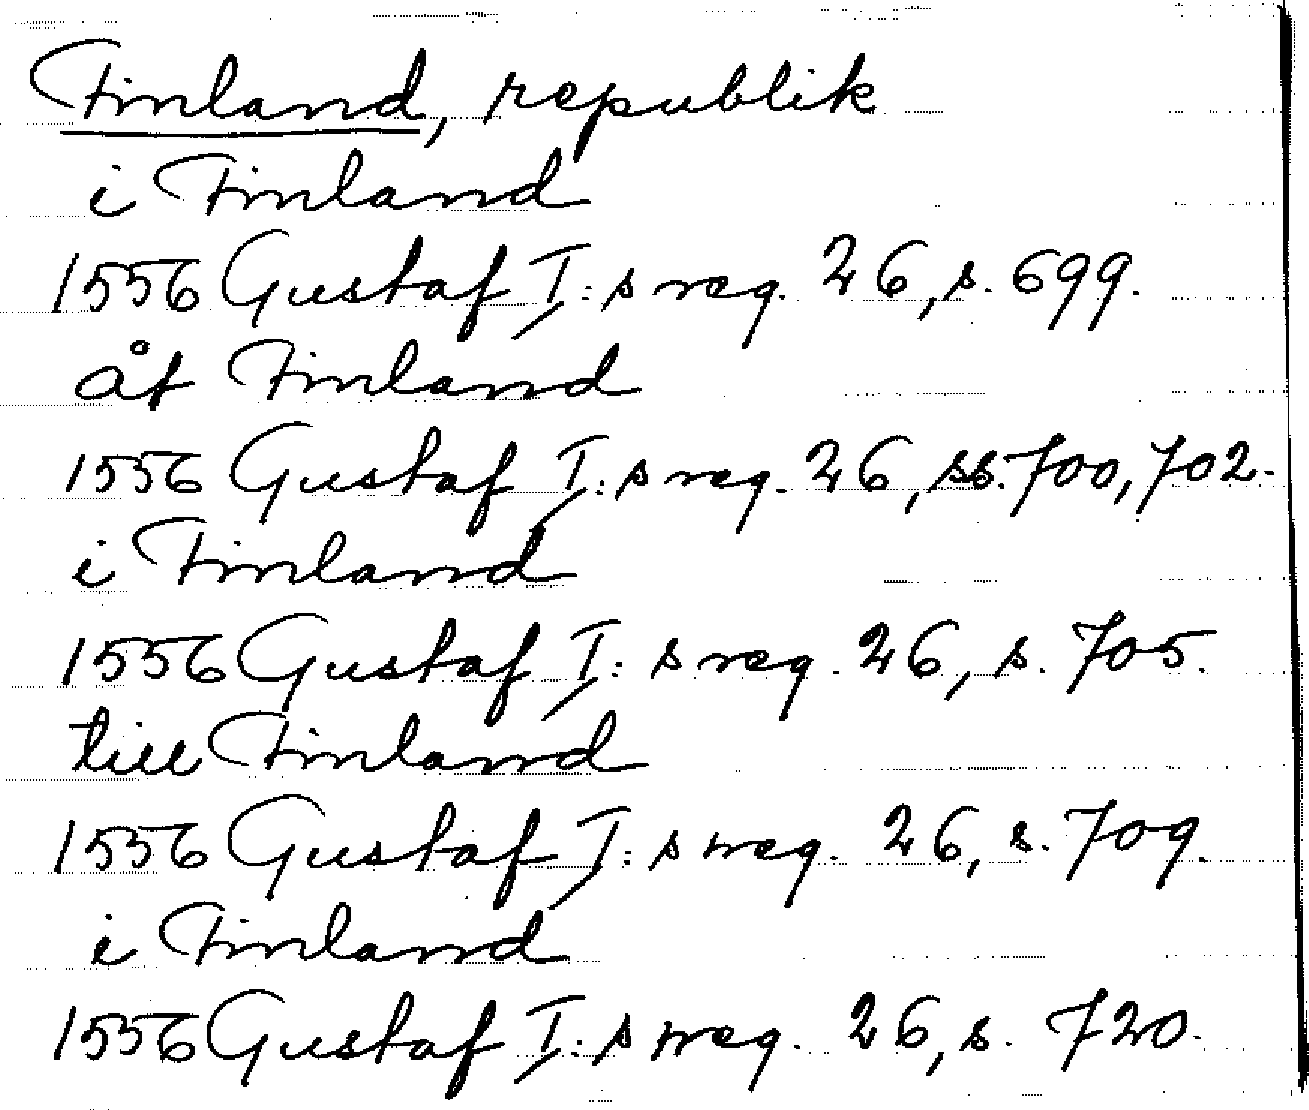 Finland, republik
i Finland
1556 Gustaf I:s reg. 26, s. 699.
åt Finland
1556 Gustaf I:s reg. 26, ss. 700, 702.
i Finland
1556 Gustaf I:s reg. 26, s. 705.
till Finland
1556 Gustaf I:s reg. 26, s. 709.
i Finland
1556 Gustaf I:s reg. 26, s. 720.